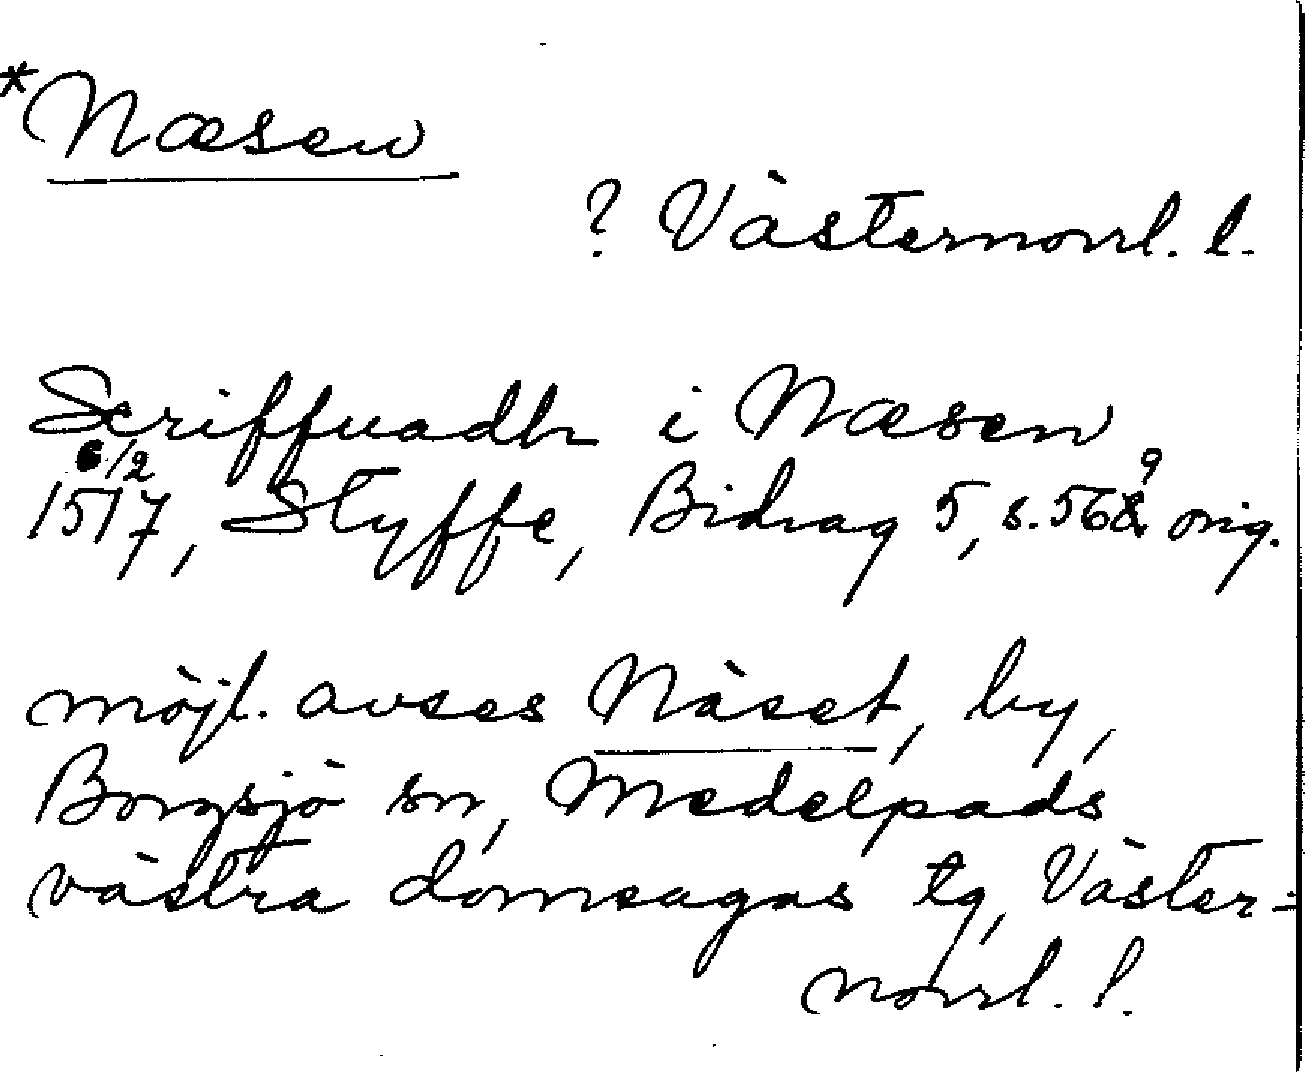 *Næsen
? Västernorrl. l.
Scriffuadh i Næsen
6/2
1517, Styffe, Bidrag 5, s. 569 orig.
möjl. avses Näset, by,
Borgsjö sn, Medelpads
västra domsagas tg, Väster=
norrl. l.